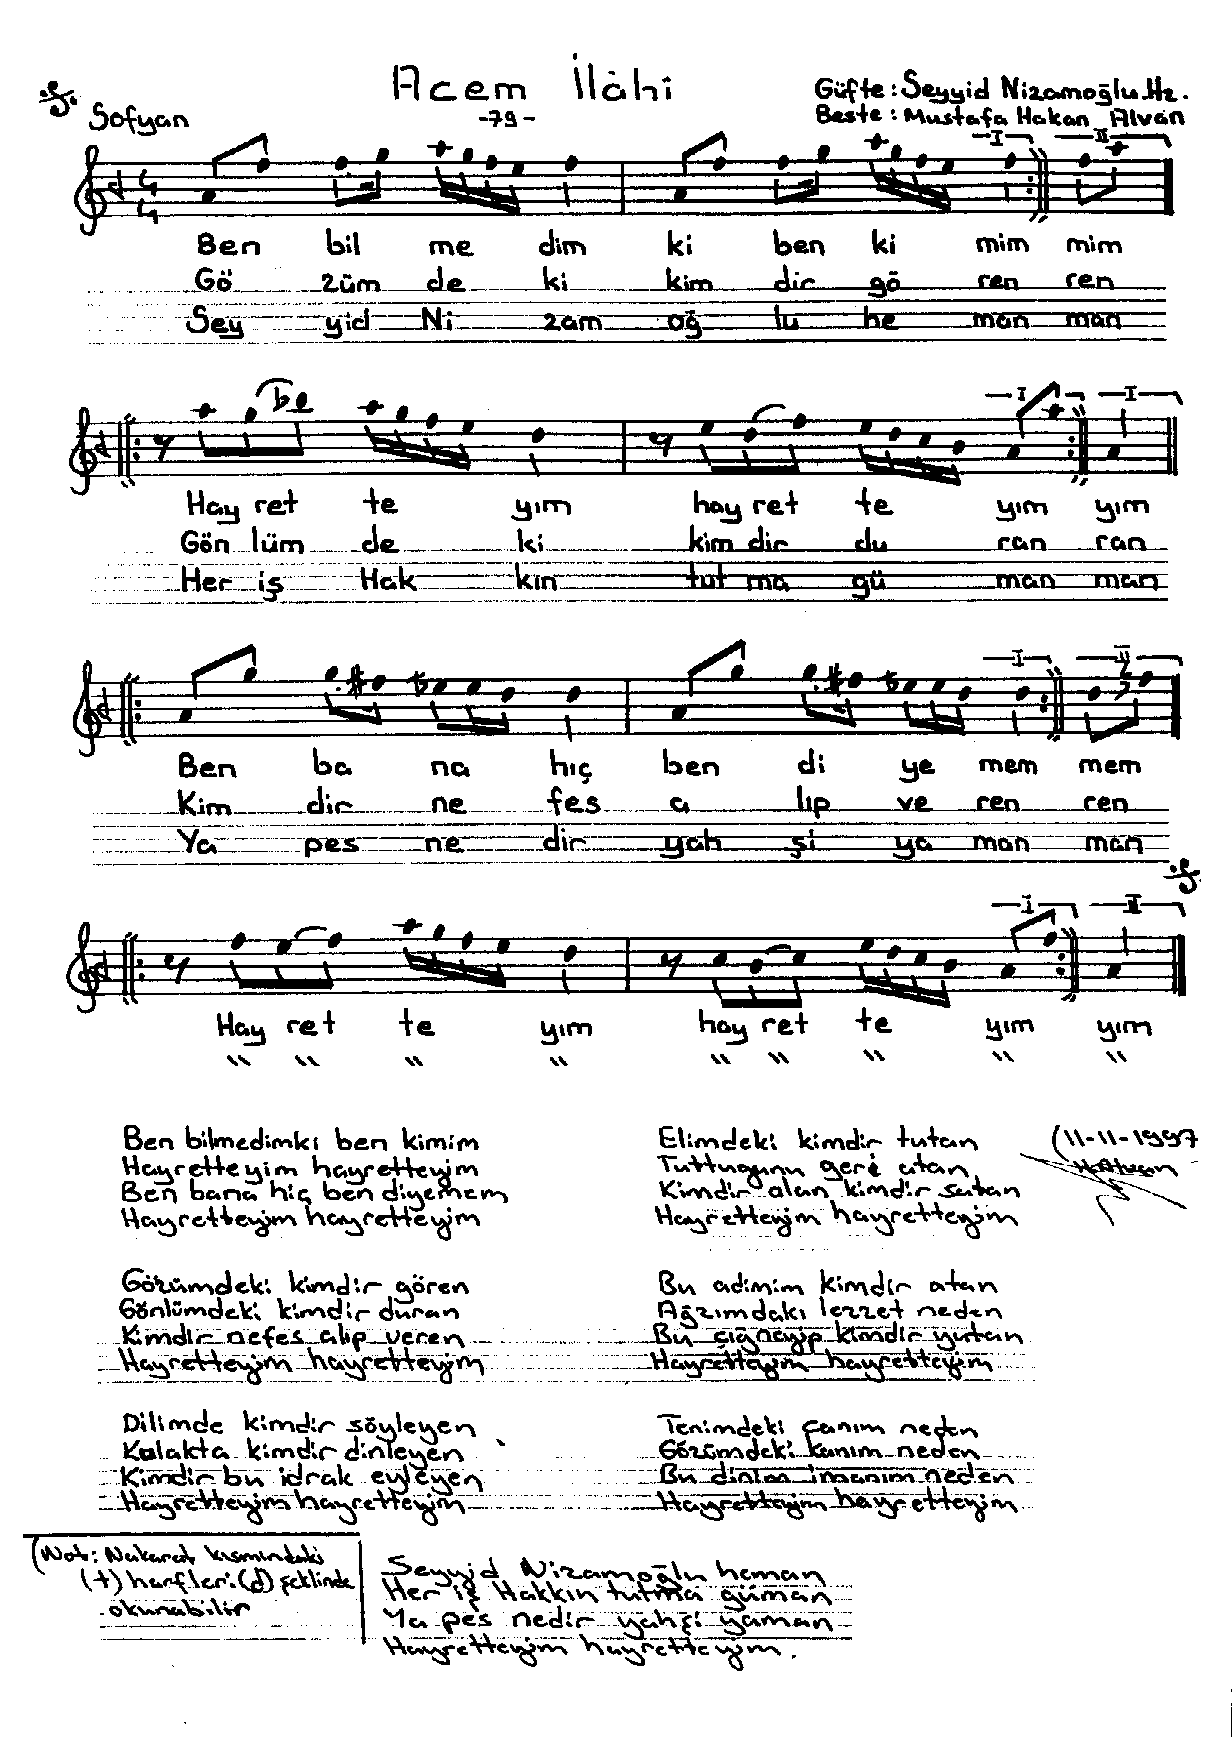 Acem İlâhi
-79-
Sofyan
Güfte: Seyyid Nizamoğlu Hz.
Beste: Mustafa Hakan Alvan
I II
Ben bil me dim ki ben ki mim mim
Gö züm de ki kim dir gö ren ren
Sey yid Ni zam oğ lu he man man
I I
Hay ret te yım hay ret te yım yım
Gön lüm de ki kim dir du ran ran
Her iş Hak kın tut ma gü man man
I II
Ben ba na hıç ben di ye mem mem
Kim dir ne fes a lıp ve ren ren
Ya pes ne dir yah şi ya man man
I II
Hay ret te yım hay ret te yım yım
" " " " " " " " "
Ben bilmedimki ben kimim
Hayretteyim hayretteyim
Ben bana hiç ben diyemem
Hayretteyim hayretteyim
Gözümdeki kimdir gören
Gönlümdeki kimdir duran
Kimdir nefes alıp veren
Hayretteyim hayretteyim
Dilimde kimdir söyleyen
Kulakta kimdir dinleyen
Kimdir bu idrak eyleyen
Hayretteyim hayretteyim
Elimdeki kimdir tutan
Tuttuğunu geré atan
Kimdir alan kimdir satan
Hayretteyim hayretteyim
Bu adımım kimdir atan
Ağzımdakı lezzet neden
Bu çiğneyip kimdir yutan
Hayretteyim hayretteyim
Tenimdeki canım neden
Gözümdeki kanım neden
Bu dinim imanım neden
Hayretteyim hayretteyim
11-11-1997
H.Alvan
(Not: Nakarat kısmındaki
(t) harfleri (d) şeklinde
okunabilir
Seyyid Nizamoğlu heman
Her iş Hakkın tutma güman
Ya pes nedir yahşi yaman
Hayretteyim hayretteyim.